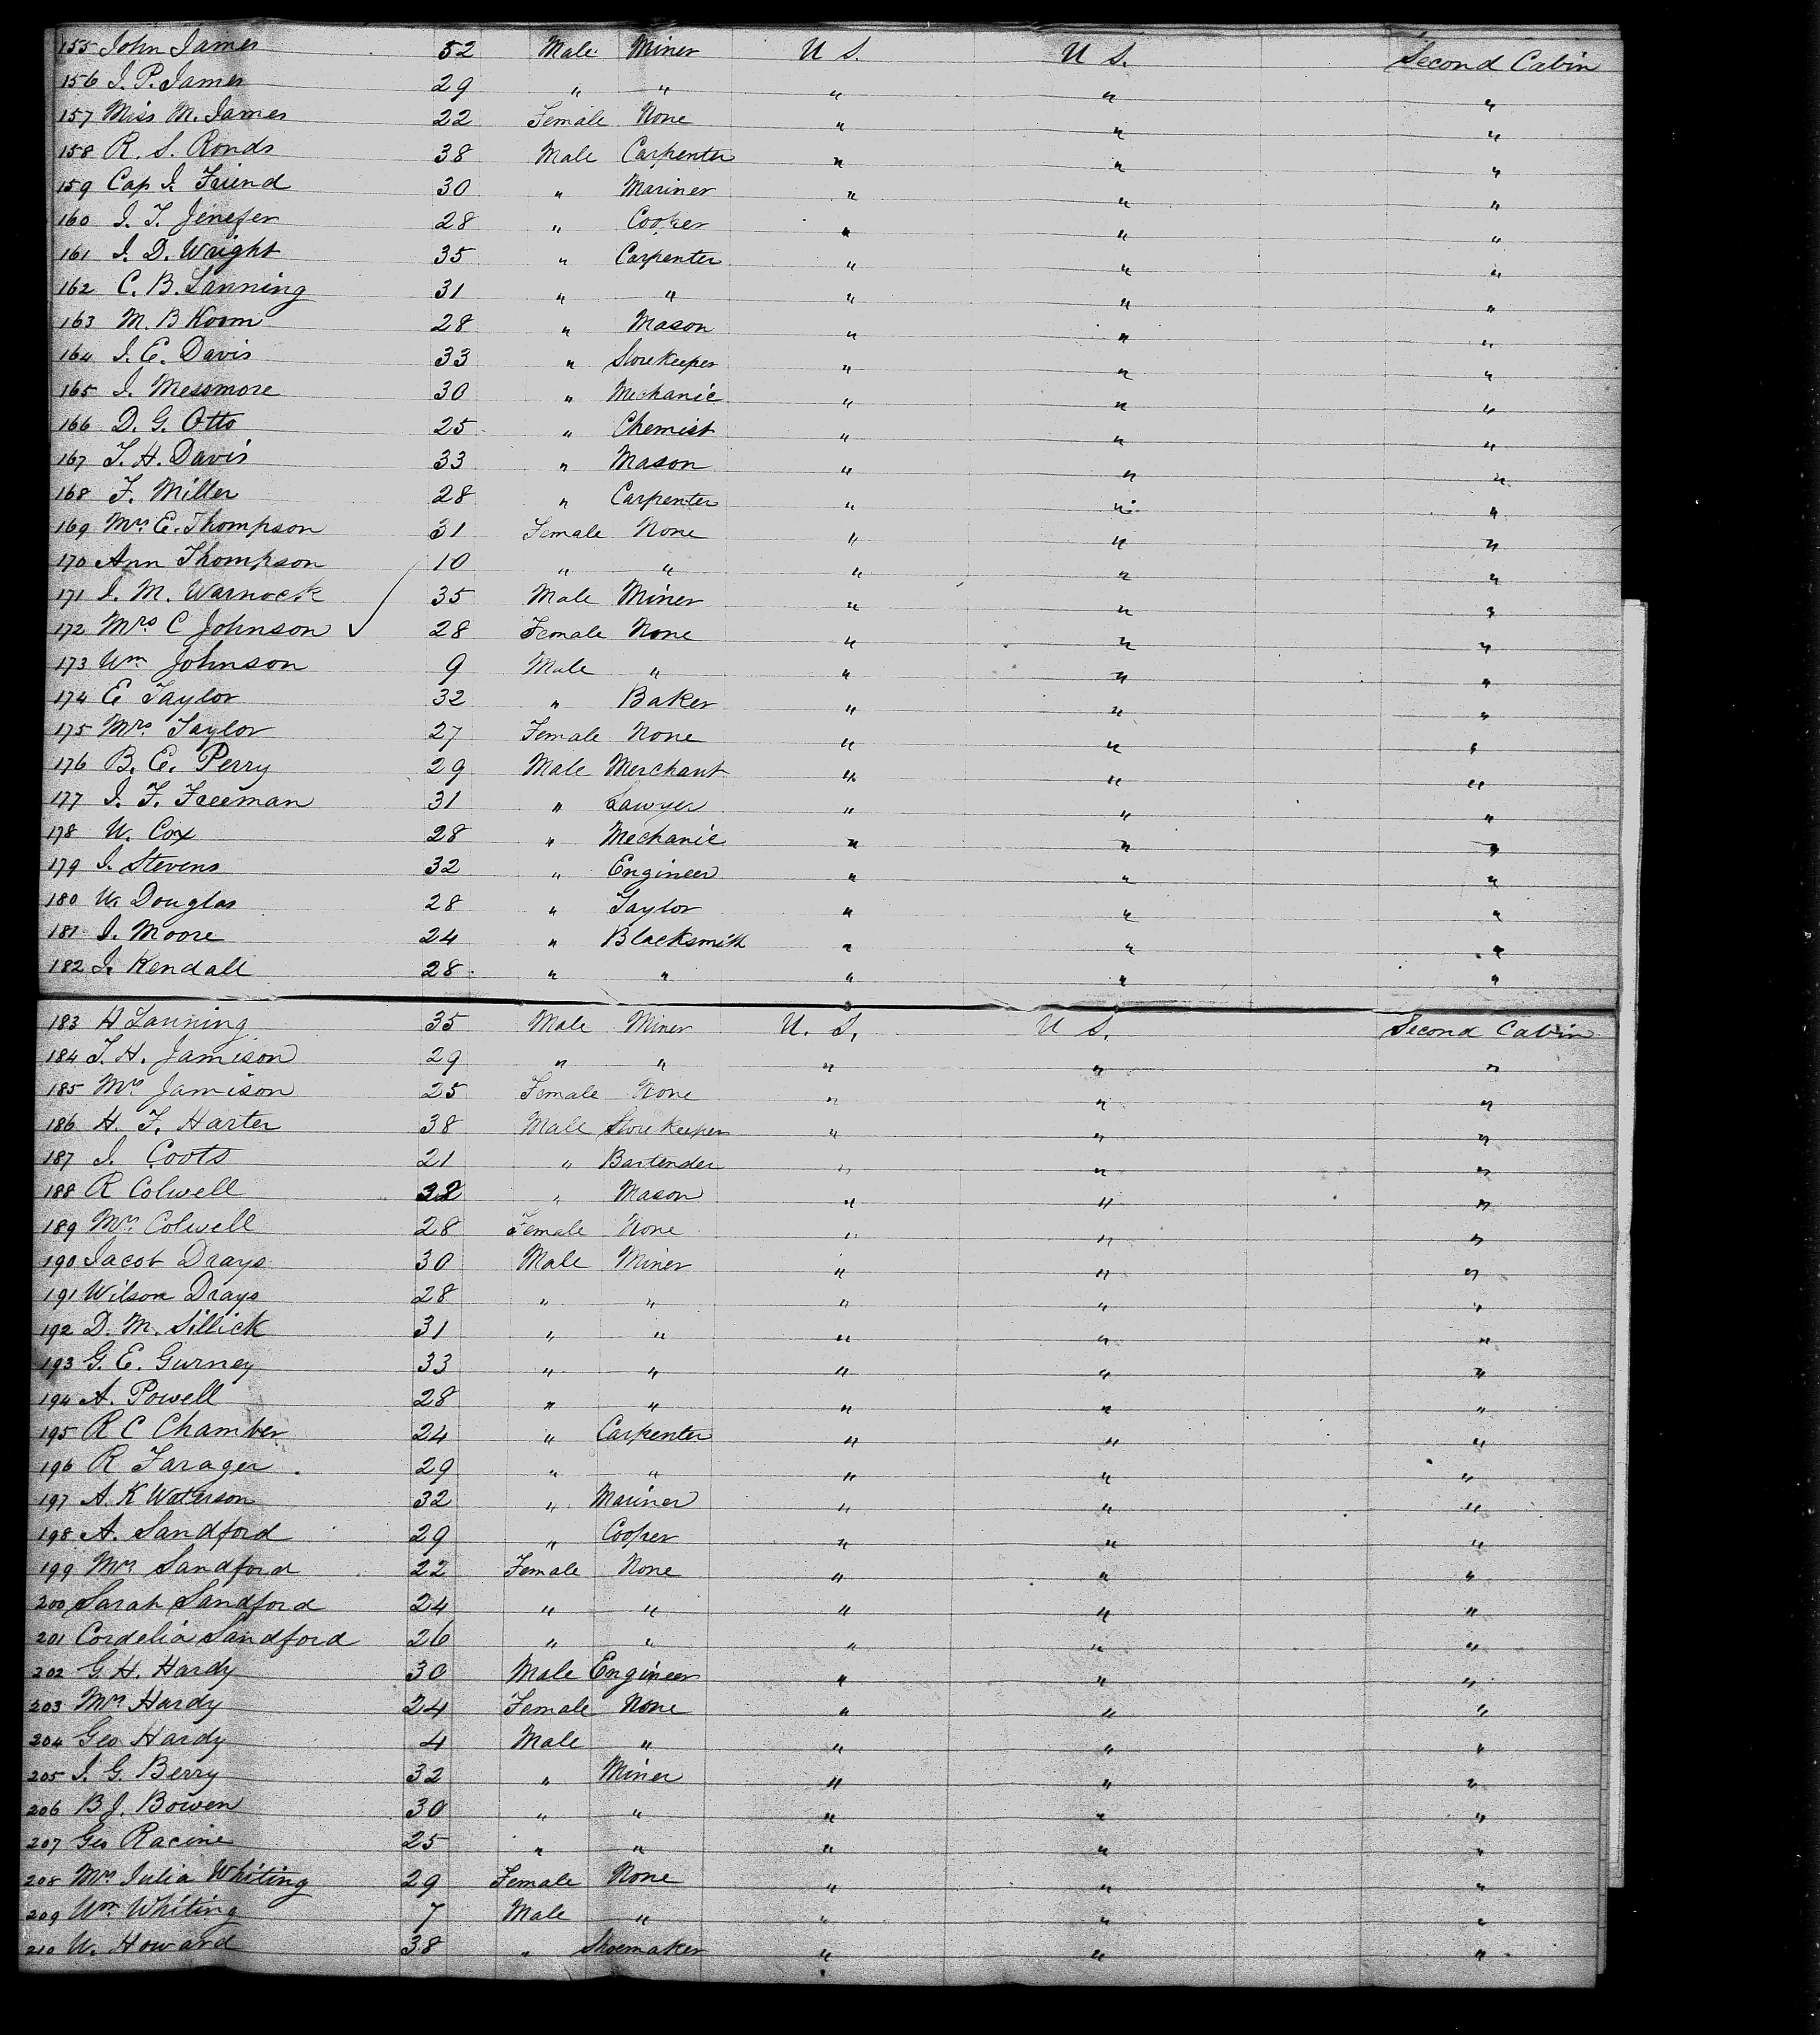 155 John James 52 Male Miner U S. U S. Second Cabin
156 J. P. James 29 " " " " "
157 Miss M. James 22 Female None " " "
158 R. S. Ronds 38 Male Carpenter " " "
159 Cap J. Friend 30 " Mariner " " "
160 J. T. Jenefer 28 " Cooper " " "
161 J. D. Wright 35 " Carpenter " " "
162 C. B. Lanning 31 " " " " "
163 M. B Koom 28 " Mason " " "
164 J. E. Davis 33 " Storekeeper " " "
165 J. Messmore 30 " Mechanic " " "
166 D. G. Otto 25 " Chemist " " "
167 T. H. Davis 33 " Mason " " "
168 F. Miller 28 " Carpenter " " "
169 Mrs. E. Thompson 31 Female None " " "
170 Ann Thompson 10 " " " " "
171 J. M. Warnock 35 Male Miner " " "
172 Mrs. C Johnson ✓ 28 Female None " " "
173 Wm Johnson 9 Male " " " "
174 E Taylor 32 " Baker " " "
175 Mrs. Taylor 27 Female None " " "
176 B. E. Perry 29 Male Merchant " " "
177 J. F. Freeman 31 " Lawyer " " "
178 W. Cox 28 " Mechanic " " "
179 J. Stevens 32 " Engineer " " "
180 W. Douglas 28 " Taylor " " "
181 J. Moore 24 " Blacksmith " " "
182 J. Kendall 28 " " " " "
183 H Lanning 35 Male Miner U. S. U S. Second Cabin
184 T. H. Jamison 29 " " " " "
185 Mrs Jamison 25 Female None " " "
186 H. F. Harter 38 Male Storekeeper " " "
187 J. Coots 21 " Bartender " " "
188 R Colwell 32 " Mason " " "
189 Mrs. Colwell 28 Female None " " "
190 Jacob Drays 30 Male Miner " " "
191 Wilson Drays 28 " " " " "
192 D. M. Sillick 31 " " " " "
193 G. E. Gurney 33 " " " " "
194 A. Powell 28 " " " " "
195 R C Chamber 24 " Carpenter " " "
196 R Farager 29 " " " " "
197 A. K Waterson 32 " Mariner " " "
198 A. Sandford 29 " Cooper " " "
199 Mrs Sandford 22 Female None " " "
200 Sarah Sandford 24 " " " " "
201 Cordelia Sandford 26 " " " " "
202 G. H. Hardy 30 Male Engineer " " "
203 Mrs Hardy 24 Female None " " "
204 Geo Hardy 4 Male " " " "
205 J. G. Berry 32 " Miner " " "
206 B J. Bowen 30 " " " " "
207 Geo Racine 25 " " " " "
208 Mrs Julia Whiting 29 Female None " " "
209 Wm Whiting 7 Male " " " "
210 W. Howard 38 " Shoemaker " " "